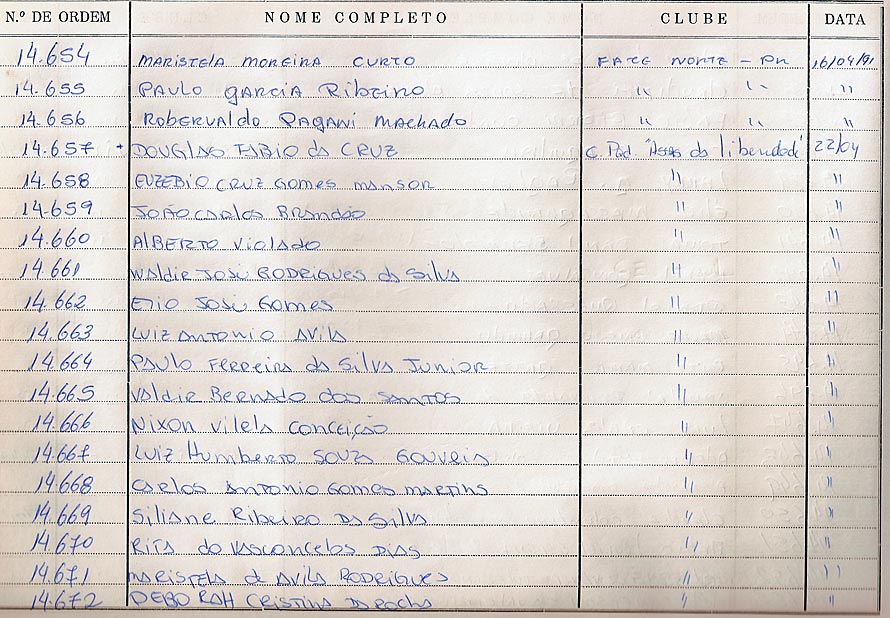 N.º DE ORDEM NOME COMPLETO CLUBE DATA
14.654 MARISTELA MOREIRA CURTO NORTE - PR 16/04/91
14.655 PAULO GARCIA RIBEIRO " " "
14.656 ROBERVALDO PAGANI MACHADO " " "
14.657 + DOUGLAS FABIO da CRUZ C. Pqd "Asas da liberdade" 22/04
14.658 EUZEBIO CRUZ GOMES MANSOR " "
14.659 JOÃO CARLOS BRANDÃO " "
14.660 ALBERTO VIOLADO " "
14.661 WALDIR JOSÉ RODRIGUES da Silva " "
14.662 ELIO JOSÉ GOMES " "
14.663 LUIZ ANTONIO AVILA " "
14.664 PAULO FERREIRA da SILVA JUNIOR " "
14.665 VALDIR BERNADO dos SANTOS " "
14.666 NIXON VILELA CONCEIÇÃO " "
14.667 LUIZ HUMBERTO SOUZA GOUVEIA " "
14.668 CARLOS ANTONIO GOMES MARTINS " "
14.669 SILIANE RIBEIRO DA SILVA " "
14.670 RITA de VASCONCELOS DIAS " "
14.671 MARISTELA de AVILA RODRIGUES " "
14.672 DEBORAH CRISTINA DA ROCHA " "